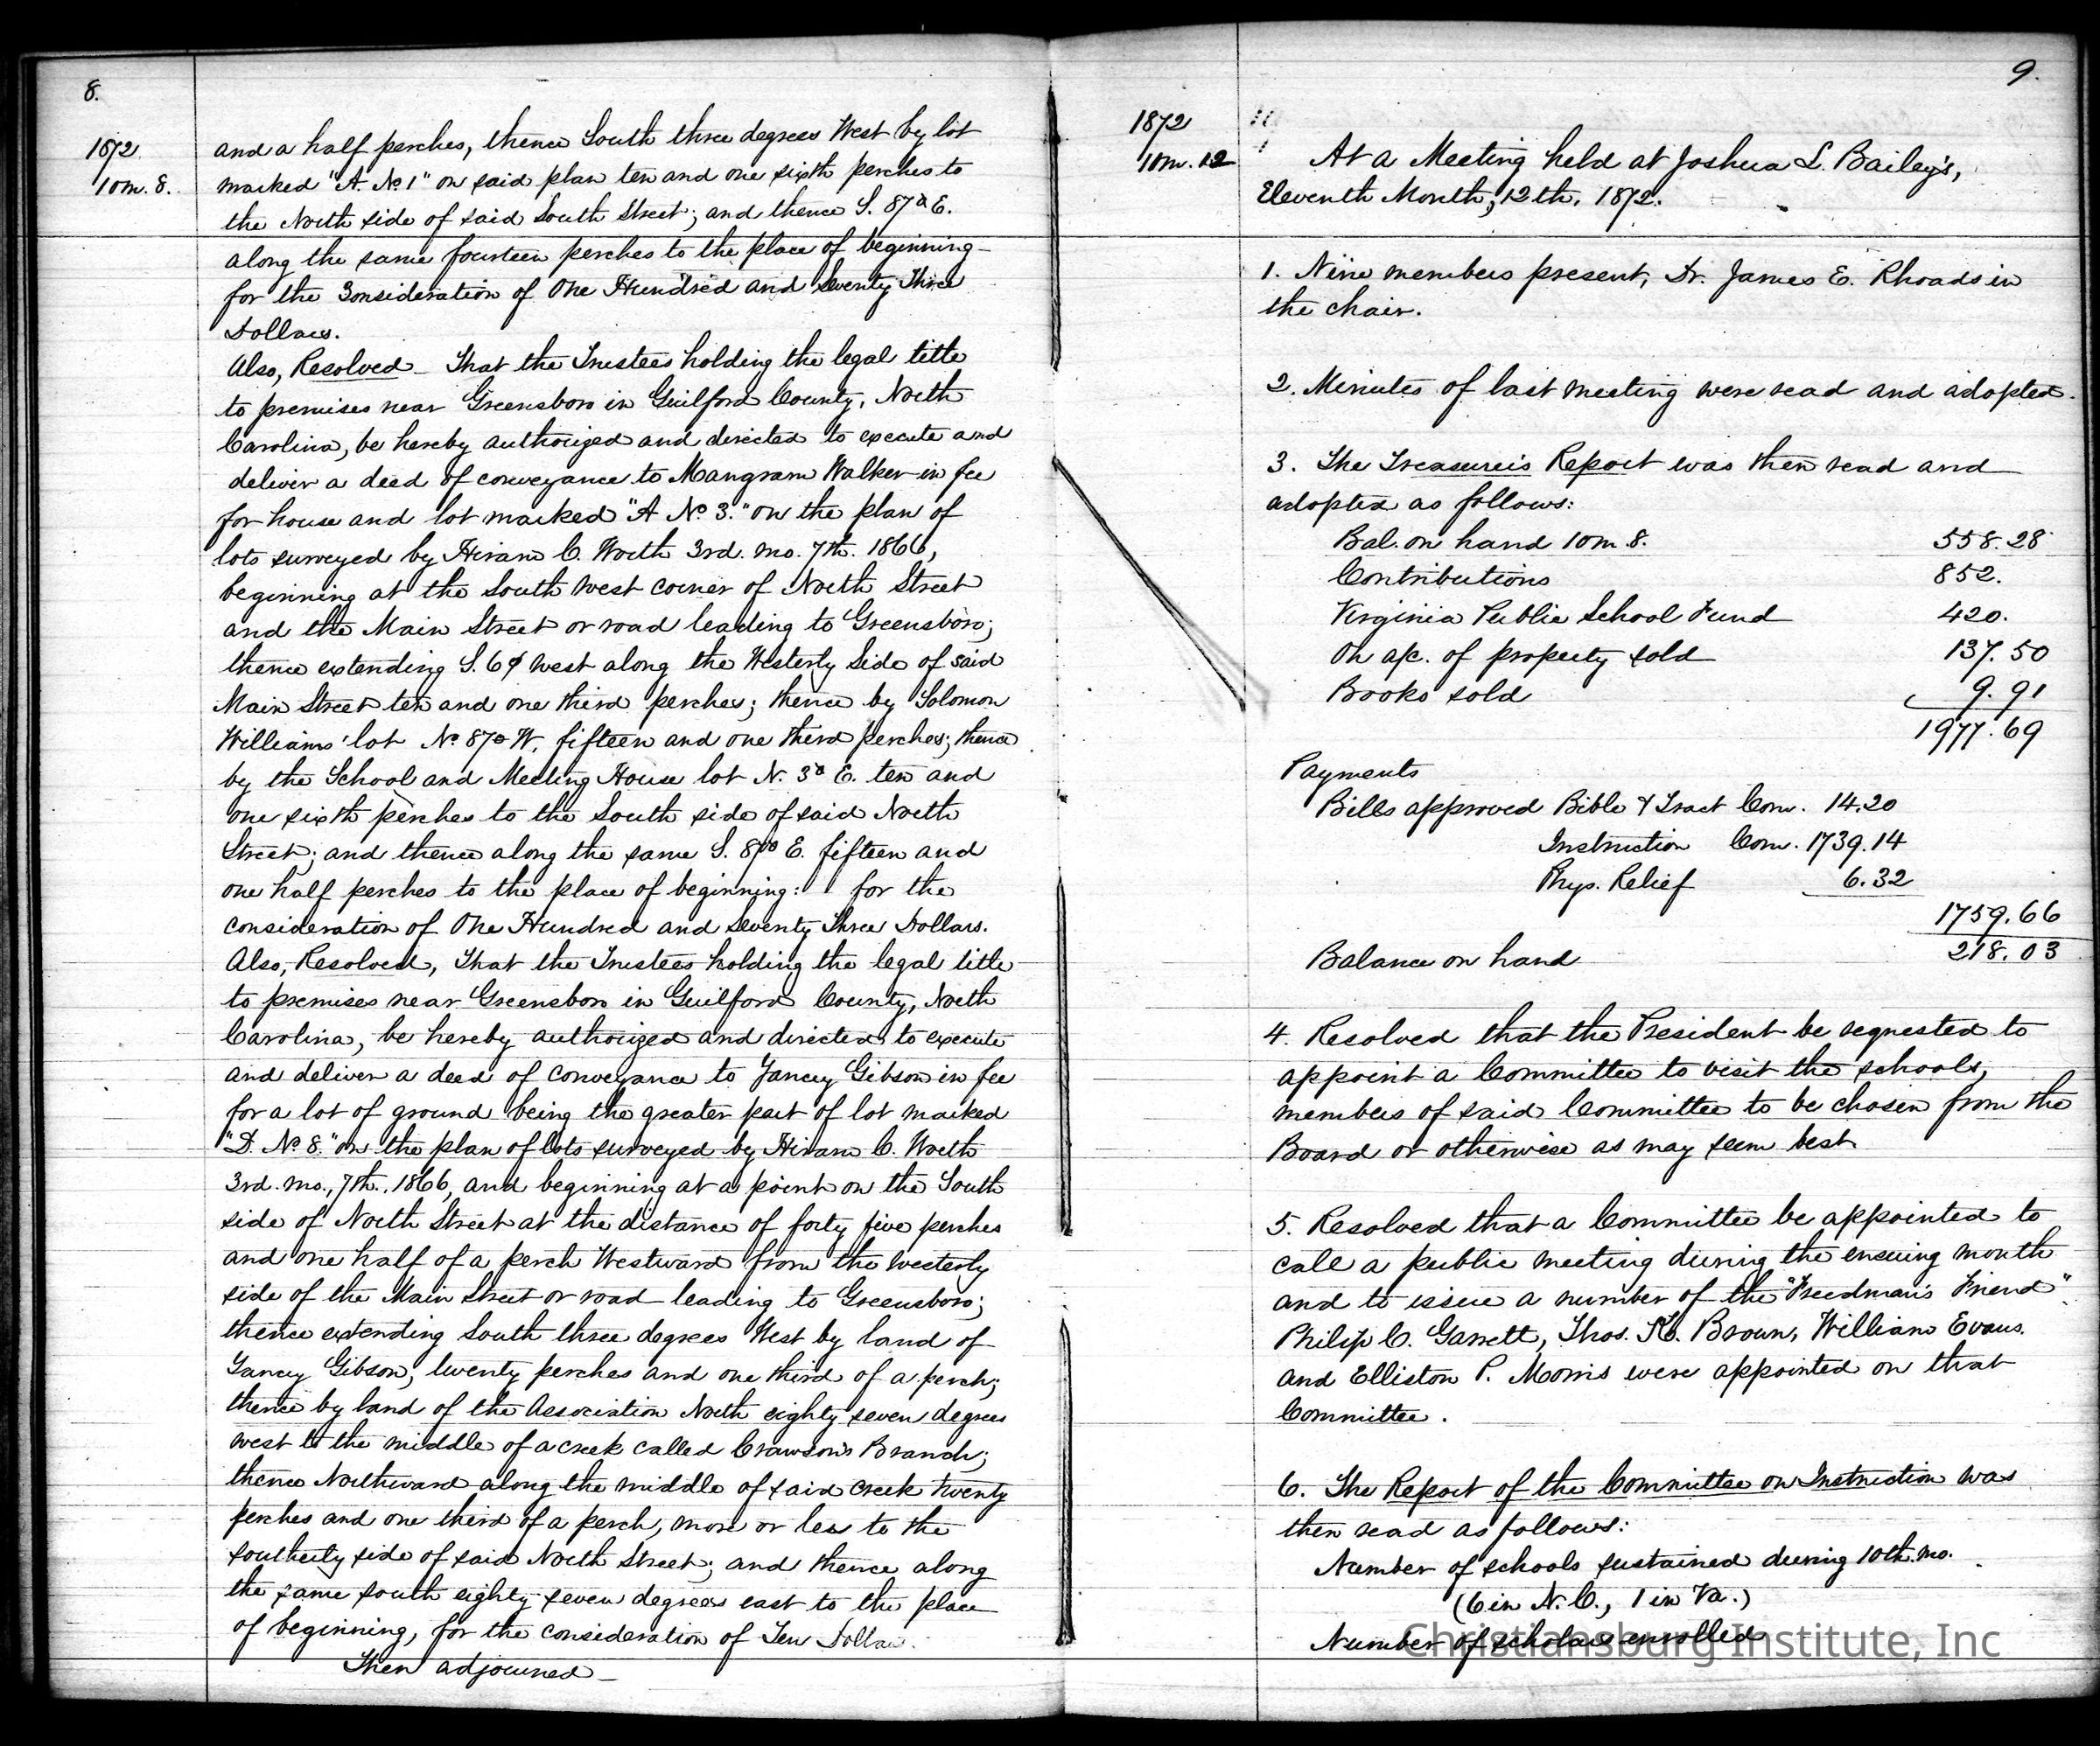 8.
1872
10m. 8.
and a half perches, thence South three degrees West by lot
marked "A. No. 1" on said plan ten and one sixth perches to
the North side of said South Street; and thence S. 87° E.
along the same fourteen perches to the place of beginning -
for the Consideration of One Hundred and Seventy Three
Dollars.
Also, Resolved - That the Trustees holding the legal title
to premises near Greensboro in Guilford County, North
Carolina, be hereby authorized and directed to execute and
deliver a deed of conveyance to Mangram Walker in fee
for house and lot marked "A No. 3." on the plan of
lots surveyed by Hiram C. Worth 3rd. mo. 7th. 1866,
beginning at the South west corner of North Street
and the Main Street or road leading to Greensboro;
thence extending S. 6° west along the Westerly Side of said
Main Street ten and one third perches; thence by Solomon
Williams' lot N. 87° W. fifteen and one third perches; thence
by the School and Meeting House lot N. 3° E. ten and
one sixth perches to the South side of said North
Street; and thence along the same S. 87° E. fifteen and
one half perches to the place of beginning: for the
consideration of One Hundred and Seventy Three Dollars.
Also, Resolved, That the Trustees holding the legal title
to premises near Greensboro in Guilford County, North
Carolina, be hereby authorized and directed to execute
and deliver a deed of conveyance to Yancey Gibson in fee
for a lot of ground being the greater part of lot marked
"D. No. 8." on the plan of lots surveyed by Hiram C. Worth
3rd. mo., 7th., 1866, and beginning at a point on the South
side of North Street at the distance of forty five perches
and one half of a perch Westward from the westerly
side of the Main Street or road leading to Greensboro;
thence extending South three degrees West by land of
Yancy Gibson, twenty perches and one third of a perch;
thence by land of the Association North eighty seven degrees
west to the middle of a creek called Crawson's Branch;
thence Northward along the middle of said creek twenty
perches and one third of a perch, more or less to the
southerly side of said North Street; and thence along
the same south eighty seven degrees east to the place
of beginning, for the consideration of Ten Dollars.
Then adjourned -
9.
1872
10m. 12
At a Meeting held at Joshua L. Bailey's,
Eleventh Month, 12th. 1872.
1. Nine members present, Dr. James E. Rhoads in
the chair.
2. Minutes of last meeting were read and adopted.
3. The Treasurer's Report was then read and
adopted as follows:
Bal. on hand 10m. 8. 558.28
Contributions 852.
Virginia Public School Fund 420.
On a/c. of property sold 137.50
Books sold 9.91
1977.69
Payments
Bills approved Bible & Tract Com. 14.20
Instruction Com. 1739.14
Phys. Relief 6.32
1759.66
Balance on hand 218.03
4. Resolved that the President be requested to
appoint a Committee to visit the schools,
members of said Committee to be chosen from the
Board or otherwise as may seem best.
5. Resolved that a Committee be appointed to
call a public meeting during the ensuing month
and to issue a number of the "Freedman's Friend".
Philip C. Garrett, Thos. K. Brown, William Evans.
and Elliston P. Morris were appointed on that
Committee.
6. The Report of the Committee on Instruction was
then read as follows:
Number of schools sustained during 10th. mo.
(6 in N. C., 1 in Va.)
Number of scholars enrolled
Christiansburg Institute, Inc